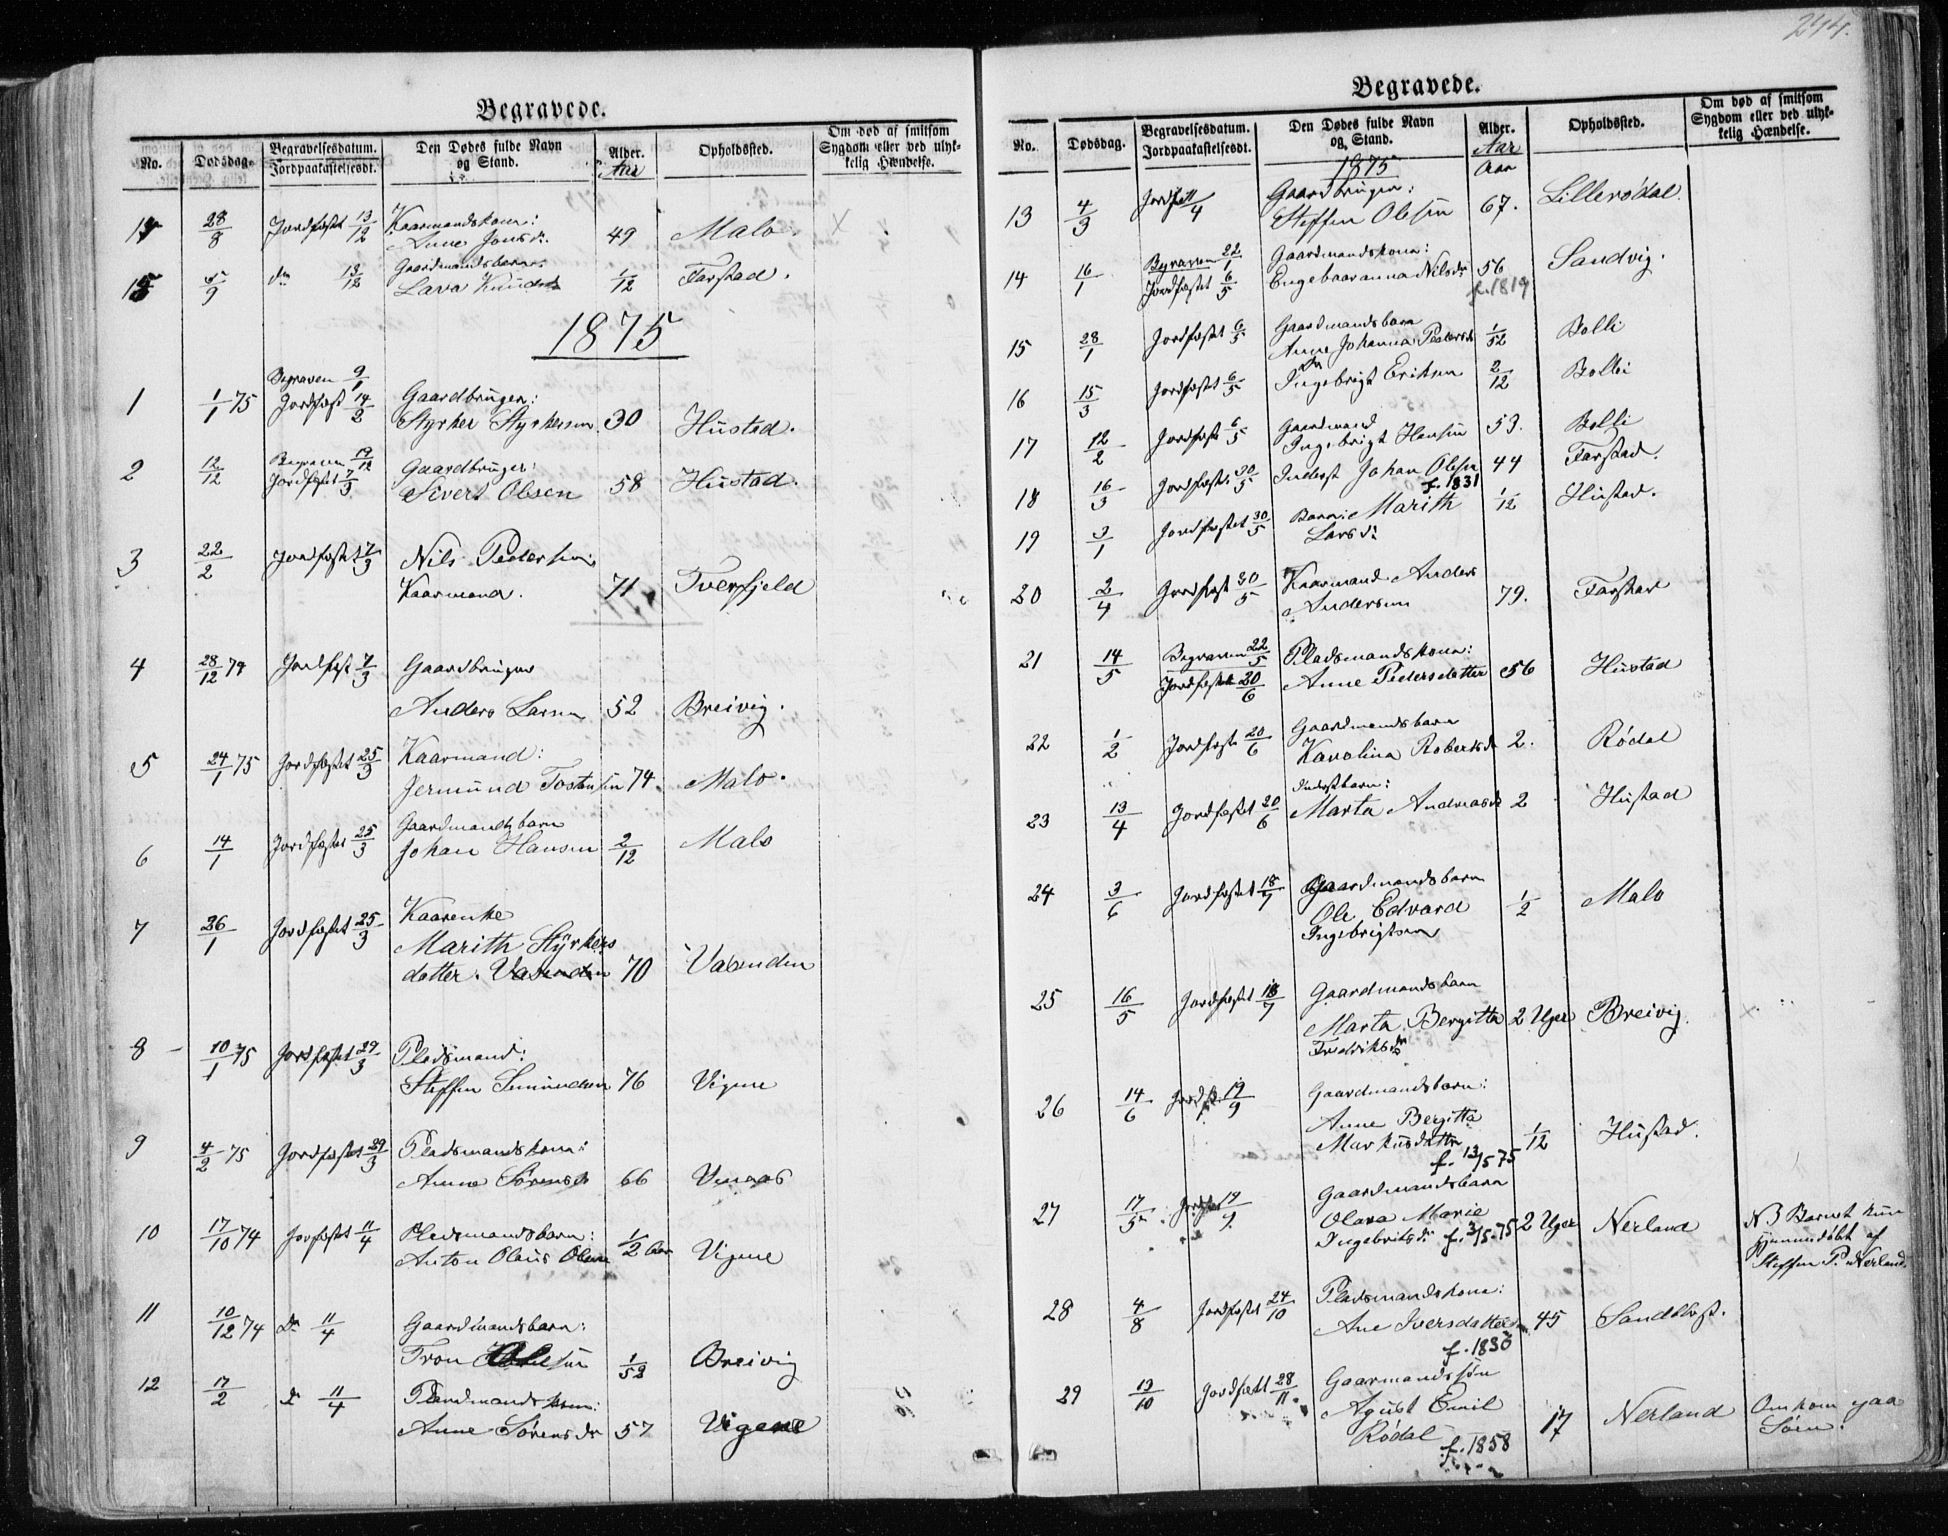 244.
Begravede.
No. Dødsdag. Begravelsesdatum. Jordpaakastelsesdt. Den Dødes fulde Navn og Stand. Alder. Aar Opholdssted. Om død af smitsom Sygdom eller ved ulykkelig Hændelse.
14 28/8 Jordfæstet 13/12 Kaarmandskone:
Anne Jonsdr. 49 Malo.
15 5/9 do 13/12 Gaardmandsbarn.
Lava Knudsdr 1/12 Farstad.
1875
Begraven 9/1
1 1/1 75 Jordfæst 14/2 Gaardbruger:
Styrker Styrkersen 30 Hustad.
2 12/12 Begraven 19/12 Gaardbruger:
Jordfæstet 7/3 Sivert Olsen 58 Hustad.
3 22/2 Jordfæstet 7/3 Nils Pedersen
Kaarmand. 71 Tverfjeld
4 28/12 74 Jordfæst 7/3 Gaardbruger
Anders Larsen 52 Breivig.
5 24/1 75 Jordfæstet 25/3 Kaarmand:
Jermund Tostensen 74 Malo.
6 14/1 Jordfæstet 25/3 Gaardmandsbarn
Johan Hansen 2/12 Malo
7 26/1 Jordfæstet 25/3 Kaarenke
Marith Styrkers
datter. Vasenden 70 Vasenden
8 10/1 75 Jordfæstet 29/3 Pladsmand:
Steffen Simundsen 76 Vigene
9 4/2 75 Jordfæstet 29/3 Pladsmandskone:
Anne Sørensdr 66 Venaas
10 17/10 74 Jorfæstet 11/4 Pladsmandsbarn:
Anton Olaus Olsen 1/2 Aar Vigene
11 10/12 74 Do 11/4 Gaardmandsbarn:
Tron Olsen 1/52 Breivig
12 17/2 do 11/4 Pladsmandskone:
Anne Sørensdr 57 Vigene
Begravede.
No. Dødsdag. Begravelsesdatum. Jordpaakastelsesdt. Den Dødes fulde Navn og Stand. Alder. Aar Opholdssted. Om død af smitsom Sygdom eller ved ulykkelig Hændelse.
1875 Aar
13 4/3 Jordfæst 11/4 Gaardbruger:
Steffen Olesen 67. Lillerødal
14 16/1 Begraven 22/1 Gaardmandskone:
Jordfæstet 6/5 Engebaaranna Nilsdr 56 Sandvig.
f. 1819
15 28/1 Jordfæstet 6/5 Gaardmandsbarn
Anne Johanna Pedersdr 1/52 Bolli
16 15/3 Jordfæstet 6/5 Do
Ingebrigt Eriksen 2/12 Bolli
17 12/2 Jordfæst 6/5 Gaardmand
Ingebrigt Hansen 53. Bolli
18 16/3 Jordfæst. 30/5 Inderst Johan Olsen 44 Farstad.
f. 1831
19 3/1 Jordfæstet 30/5 Barn: Marith 1/12 Hustad.
Larsdr
20 2/4 Jordfæst 30/5 Kaarmand Anders
Andersen 79. Farstad
21 14/5 Begraven 22/5 Pladsmandskone:
Jordfæstet 20/6 Anne Pedersdatter 56 Hustad
22 1/2 Jordfæst 20/6 Gaardmandsbarn
Karolina Robertsdr 2. Rødal
23 13/4 Jordfæstet 20/6 Inderstbarn:
Marta Andreasdr 2 Hustad
24 3/6 Jordfæstet 18/7 Gaardmandsbarn
Ole Edvard 1/2 Malo
Ingebrigtsen
25 16/5 Jordfæstet 18/7 Gaardmandsbarn
Marta Bergitta 2 Uger Breivig.
Fredriksdr
26 14/6 Jordfæ 19/9 Gaardmandsbarn:
Anne Bergitta
Markusdatter 1/12 Hustad.
f. 13/5 75
27 17/5 Jordfæst 19/9 Gaardmandsbarn
Olava Marie 2 Uger Nerland
Ingebritsdr f. 3/5. 75
N3 Barnet kun
hjemmedøbt af
Steffen P. Nerland.
28 4/8 Jordfæstet 24/10 Pladsmandskone:
Ane Iversdatter 45 Sandblost.
f. 1830
29 13/10 Jordfæstet 28/11. Gaarmandssøn
Agust Emil
Rødal 17 Nerland
f. 1858
Omkom paa
Søen.